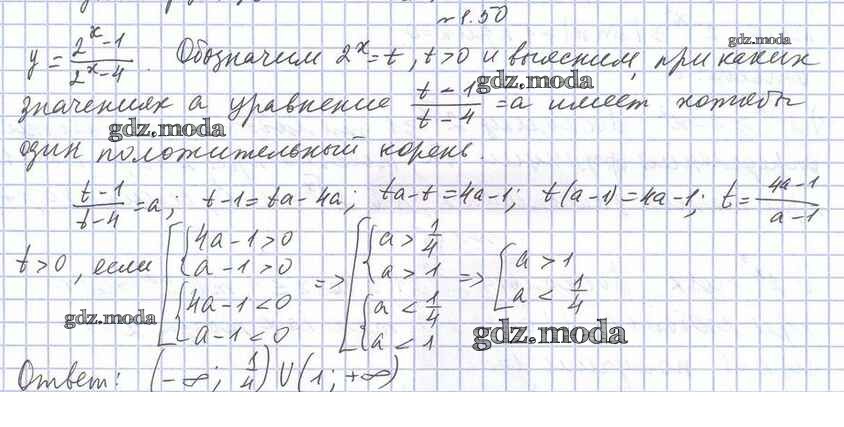 № 1.50
gdz.moda
y = (2^x - 1)/(2^x - 4). Обозначим 2^x = t, t > 0 и выясним, при каких
gdz.moda
значениях a уравнение (t - 1)/(t - 4) = a имеет хотябы
gdz.moda
один положительный корень.
(t-1)/(t-4) = a; t-1 = ta-4a; ta-t = 4a-1; t(a-1) = 4a-1; t = (4a-1)/(a-1)
t > 0, если [ { 4a-1 > 0, a-1 > 0; { 4a-1 < 0, a-1 < 0 => [ { a > 1/4, a > 1; { a < 1/4, a < 1 => [ a > 1, a < 1/4
gdz.moda
gdz.moda
Ответ: (-∞; 1/4) U (1; +∞)